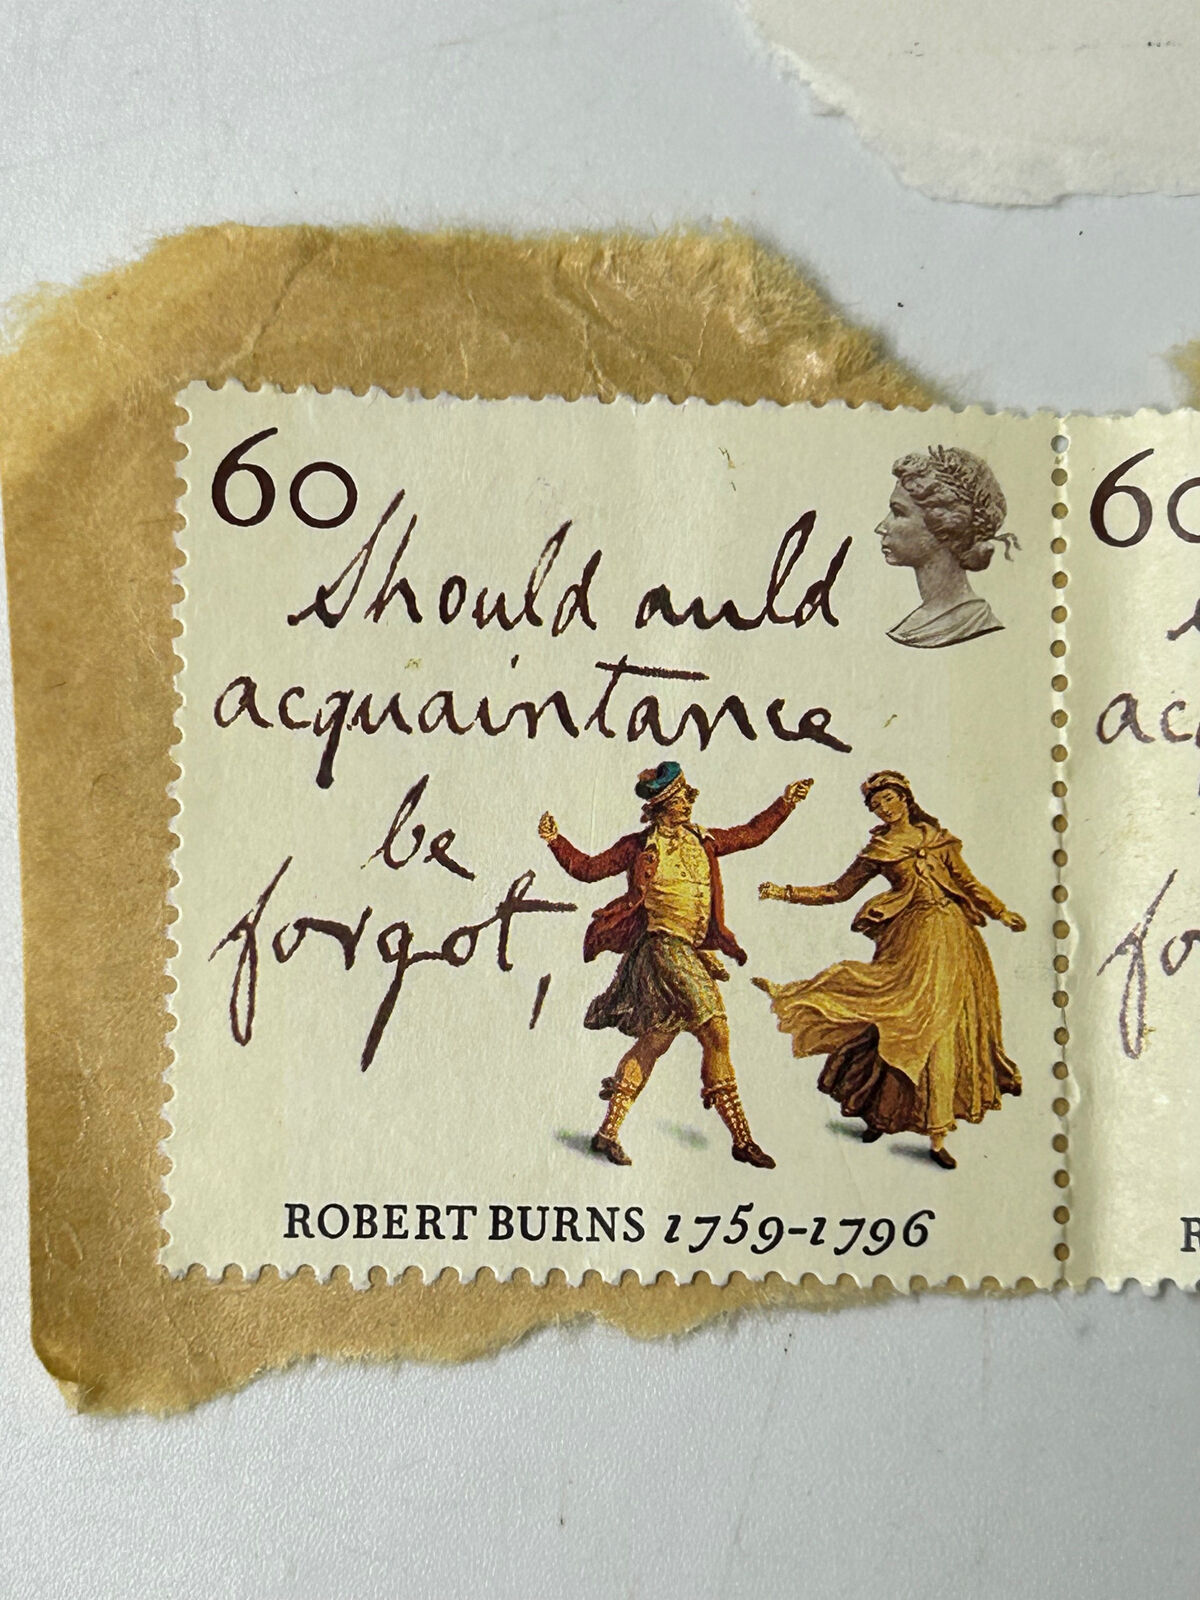 60
Should auld
acquaintance
be
forgot,
ROBERT BURNS 1759-1796
60